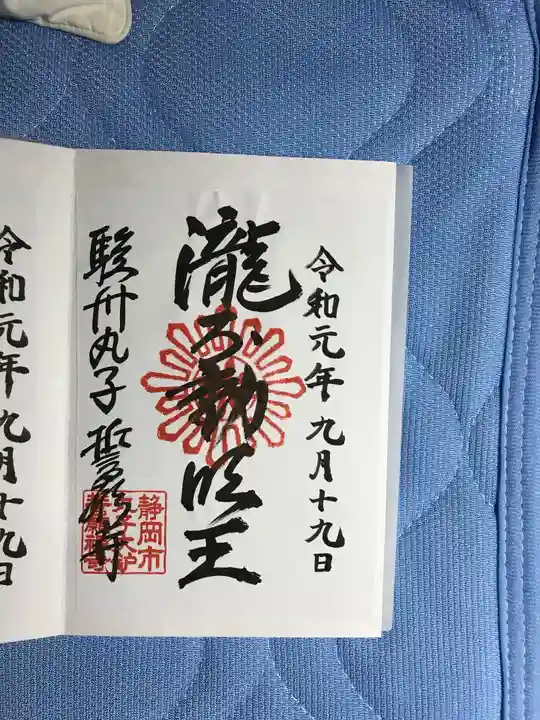 令和元年九月十九日
瀧不動明王
駿州丸子 誓願寺
静岡市
丸子大炉
誓願禅寺
令和元年九月十九日